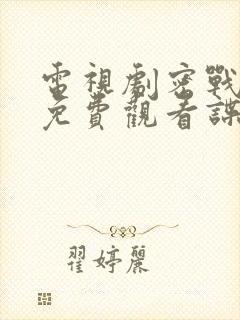 電視劇密戰
免費觀看諜
翟婷麗